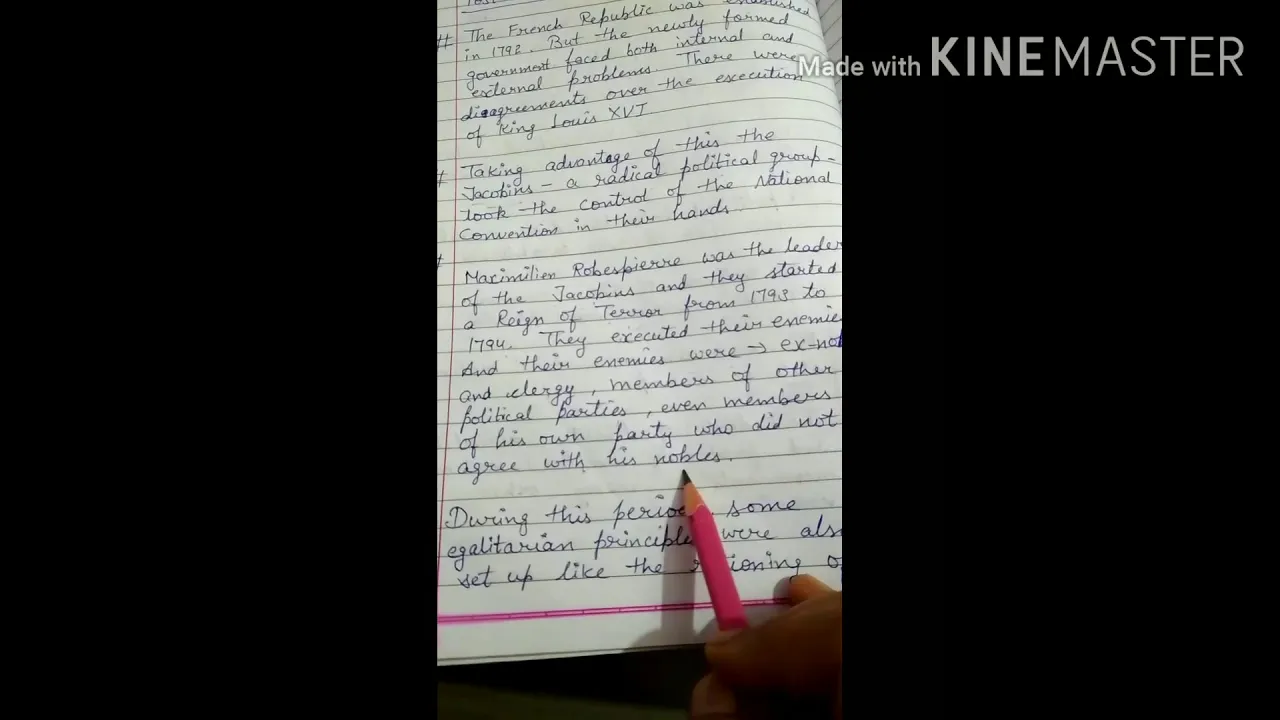 # The French Republic was established
in 1792. But the newly formed
government faced both internal and
external problems. There were
disagreements over the execution
of King Louis XVI
# Taking advantage of this the
Jacobins - a radical political group -
took the control of the National
Convention in their hands.
Maximilien Robespierre was the leader
of the Jacobins and they started
a Reign of Terror from 1793 to
1794. They executed their enemie
And their enemies were → ex-nob
and clergy, members of other
political parties, even members
of his own party who did not
agree with his nobles.
During this period some
egalitarian principles were also
set up like the
Made with KINEMASTER